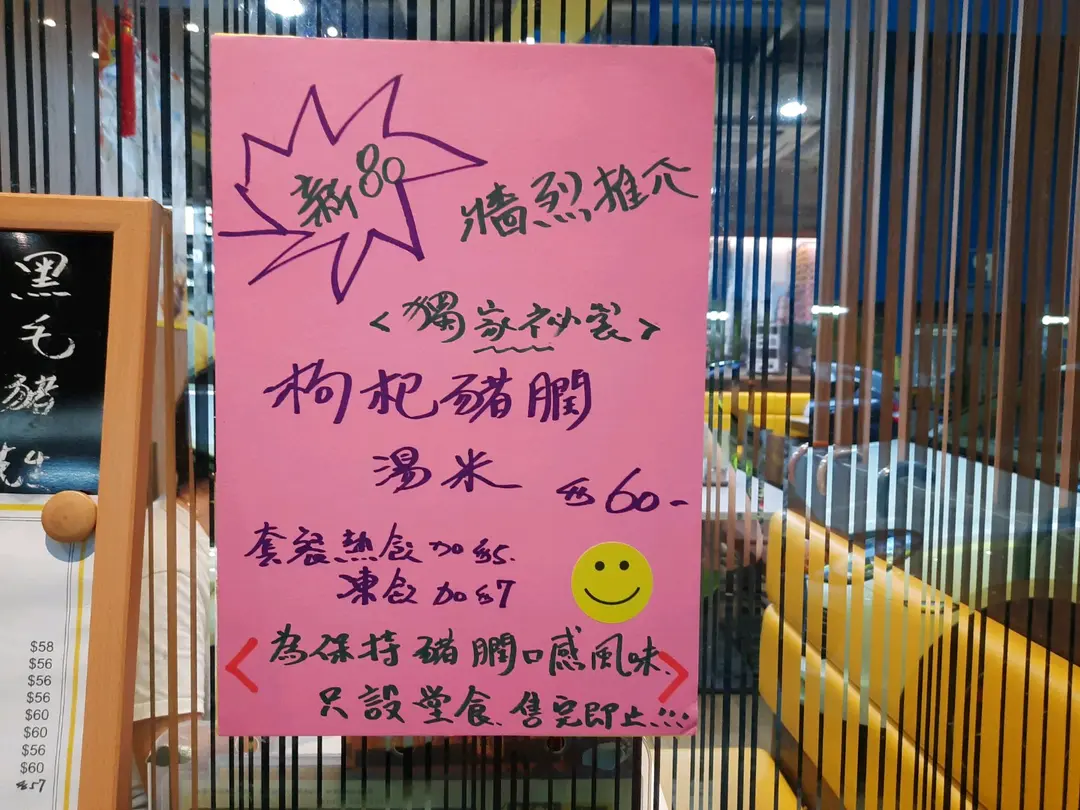 新80
牆烈推介
<獨家祕製>
枸杞豬膶
湯米 $60-
套餐熱飲加$5.
凍飲加$7
<為保持豬膶口感風味.>
只設堂食.售完即止!!!
黑
毛
豬
$58
$56
$56
$56
$60
$60
$56
$60
$57